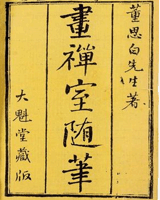 董思白先生著
畫禪室随筆
大魁堂藏版